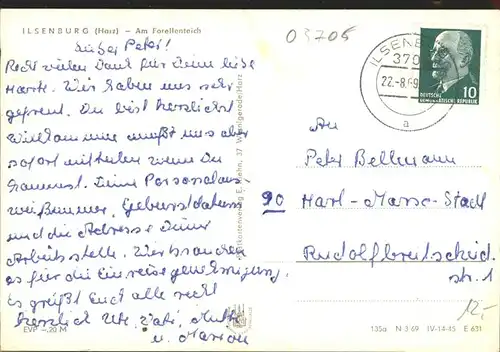 ILSENBURG (Harz) – Am Forellenteich
03705
Lieber Peter!
Recht vielen Dank für Deine liebe
Karte. Wir haben uns sehr
gefreut. Du bist herzlichst
Willkommen mußt uns aber
sofort mitteilen wenn Du
kommst. Deine Personalaus-
weißnummer, Geburtsdatum
und die Adresse Deiner
Arbeitsstelle. Wir brauchen
es für die Einreisegenehmigung.
Es grüßt Euch alle recht
herzlich Ute, Vati, Mutti
u. Marion
EVP –.20 M
37 Wernigerode/Harz
ILSENBURG
370
22.-8.69
a
10
DEUTSCHE
DEMOKRATISCHE REPUBLIK
An
Peter Bellmann
90 Karl-Marx-Stadt
Rudolfbreitscheid
str. 1
12,-
135a N 3/69 IV-14-45 E 631